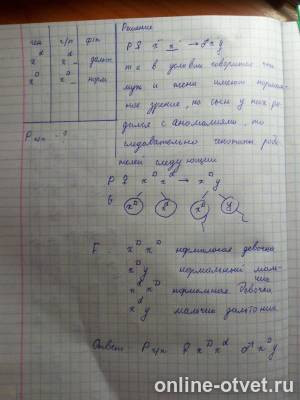 Решение
ген г/п фен
x^d x^d _ дальт.
x^D x^D _ норм.
P ♀ x^- x^- → ♂ x y
т к в условии говорится что
муж и жена имеют нормаль
ное зрение, но сын у них ро
дился с аномалиями, то
следовательно генотип роди
телей следующий
P ♀ x^D x^d → x^D y
G x^D x^d x^D y
F x^D x^D нормальная девочка
x^D y нормальный маль
чик
x^d x^D нормальная девочка
x^d y мальчик дальтоник
Ответ P г/п ♀ x^D x^d ♂ x^D y
online-otvet.ru